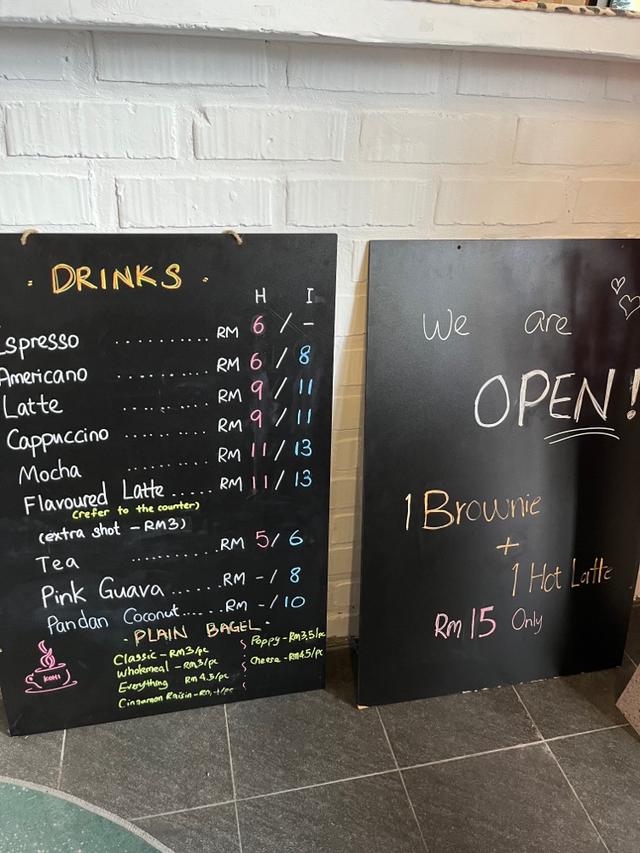 · DRINKS ·
H I
Espresso .......... RM 6 / -
Americano .......... RM 6 / 8
Latte .......... RM 9 / 11
Cappuccino .......... RM 9 / 11
Mocha .......... RM 11 / 13
Flavoured Latte ..... RM 11 / 13
(refer to the counter)
(extra shot - RM3)
Tea .......... RM 5 / 6
Pink Guava ...... RM - / 8
Pandan Coconut ..... RM - / 10
· PLAIN BAGEL ·
Classic - RM3/pc
Wholemeal - RM3/pc
Everything RM4.5/pc
Cinnamon Raisin
Poppy - RM3.5/pc
Cheese - RM4.5/pc
KOHI
We are
OPEN!
1 Brownie
+
1 Hot Latte
Rm 15 Only